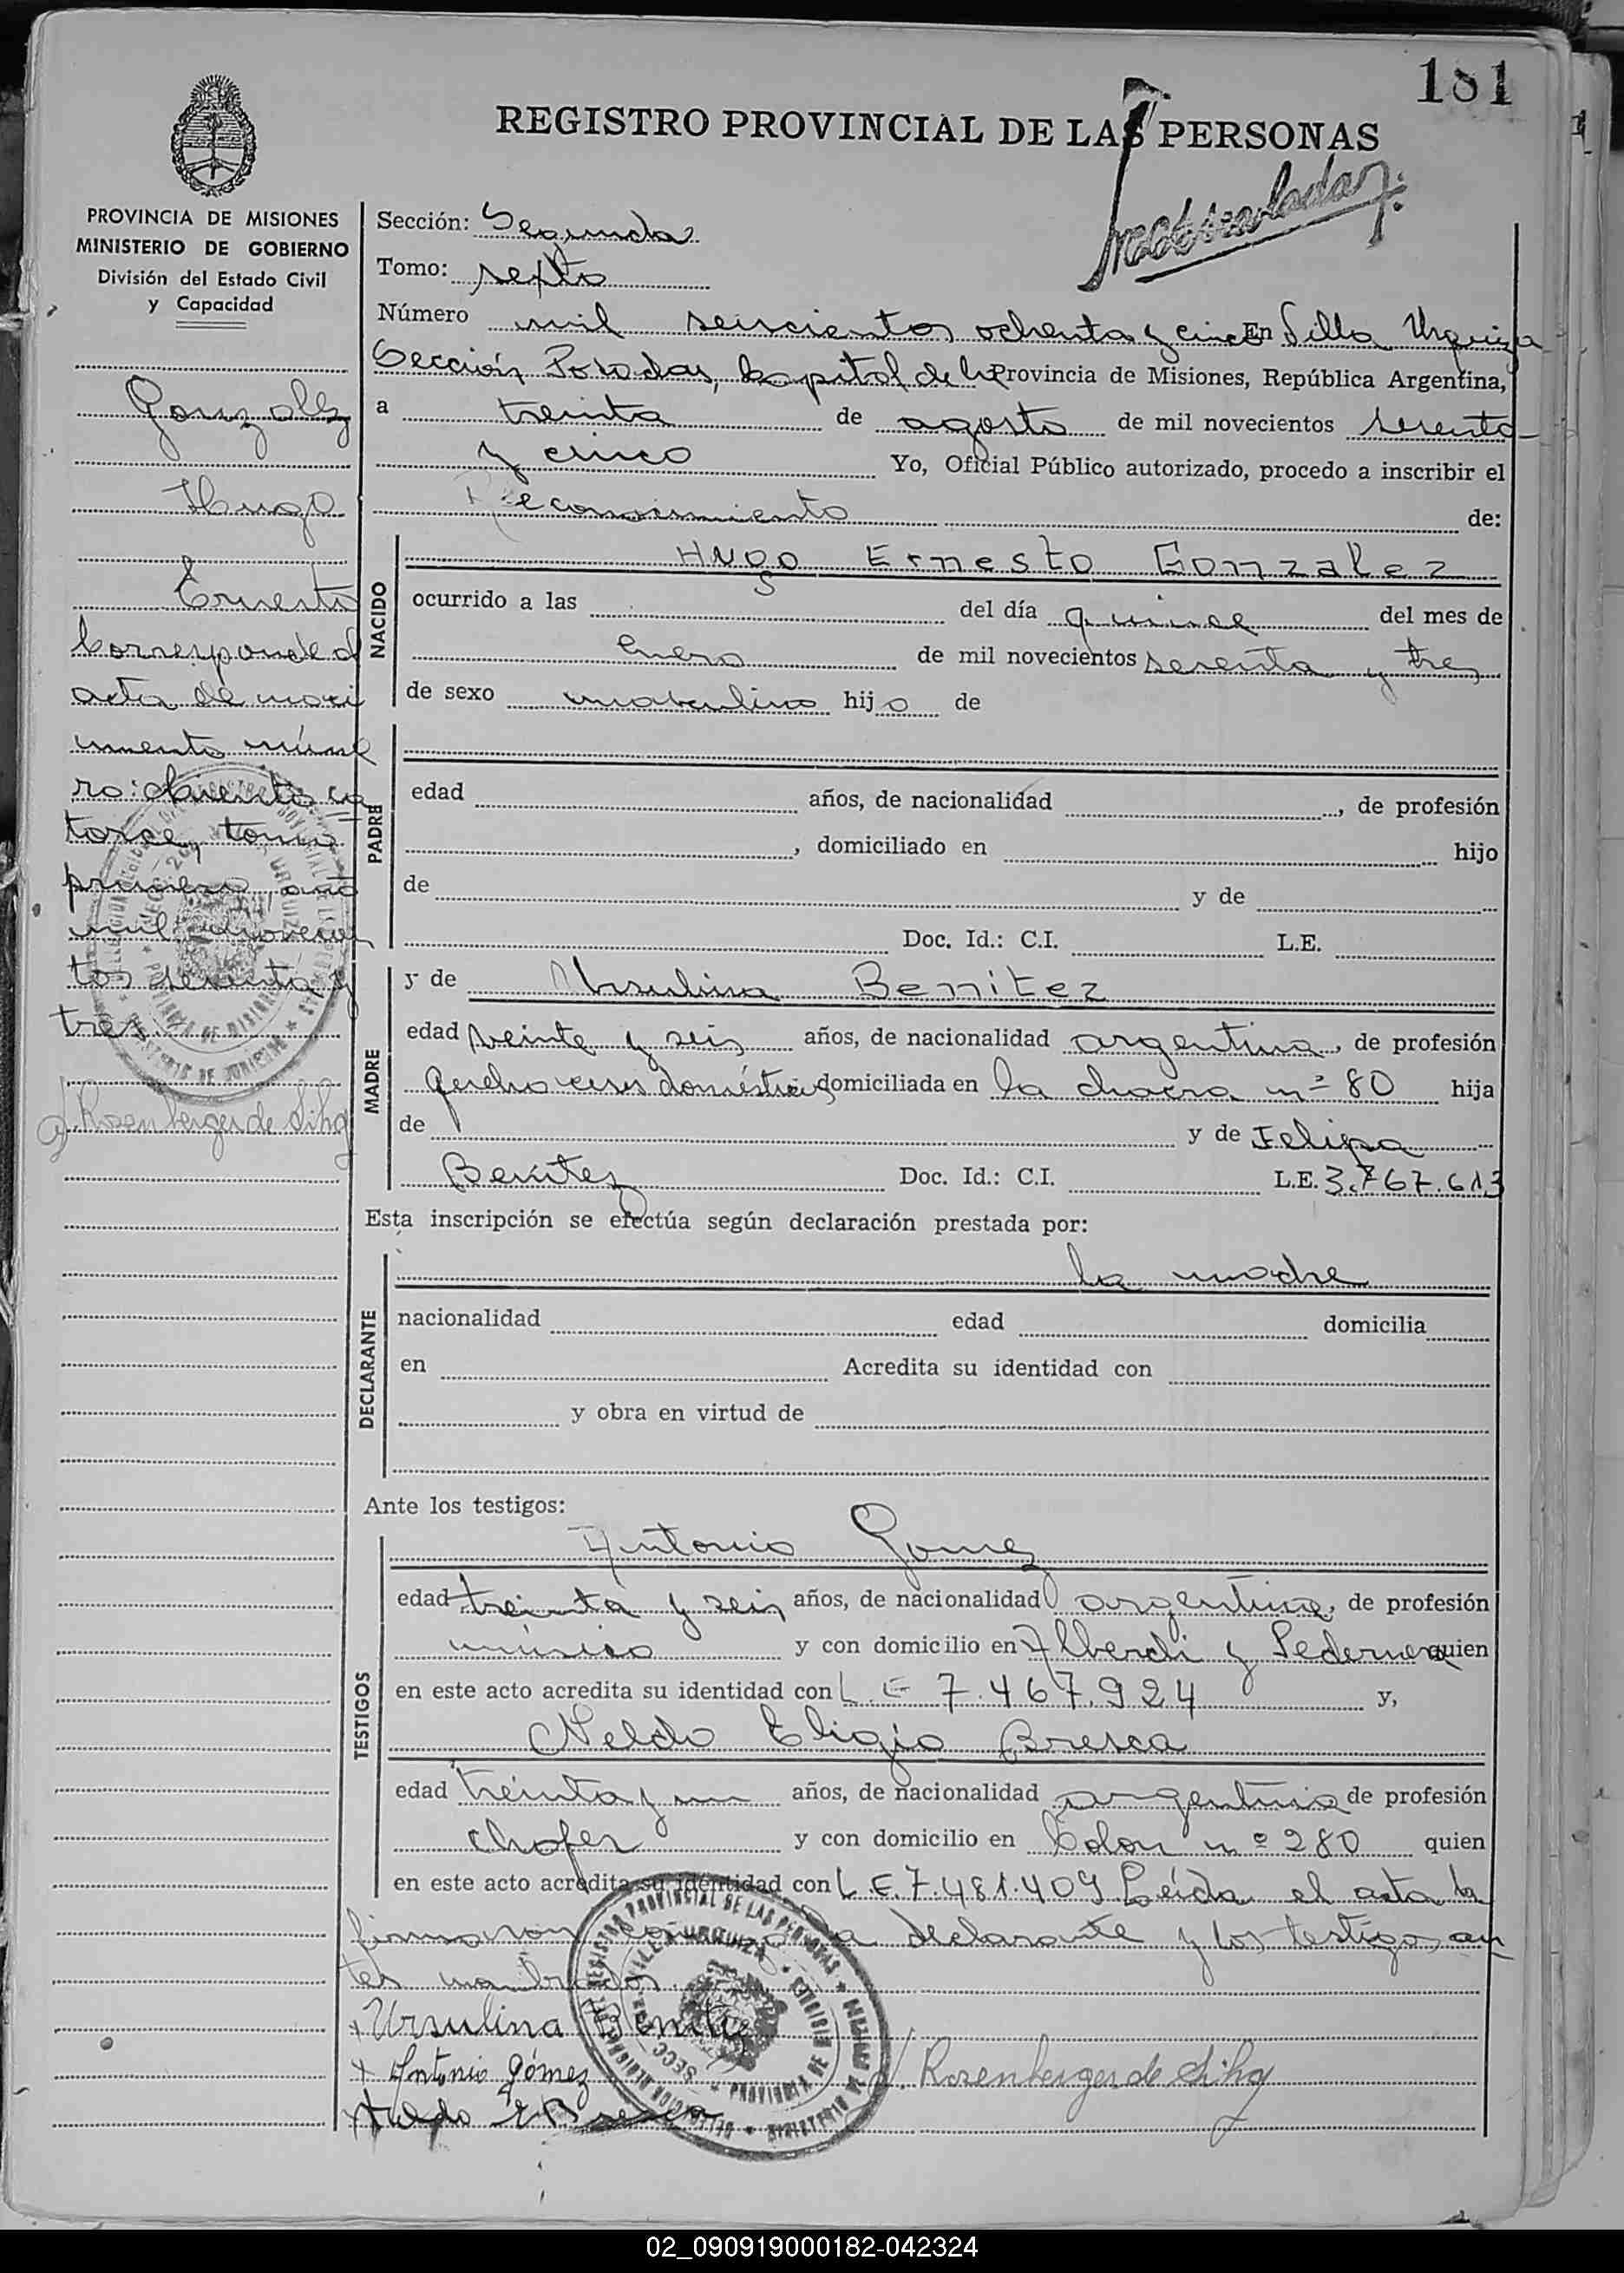 181
REGISTRO PROVINCIAL DE LAS PERSONAS
PROVINCIA DE MISIONES
MINISTERIO DE GOBIERNO
División del Estado Civil
y Capacidad
Gonzalez
Hugo
Ernesto
Corresponde al
acta de naci
miento núme
ro: doscientos ca
torce, tomo
primero año
mil novecien
tos sesenta y
tres
Rosenberger de Silva
Sección: Segunda
Tomo: sexto
Número mil seiscientos ochenta y cinco En Villa Urquiza
Sección Posadas, Capital de la Provincia de Misiones, República Argentina,
a treinta de agosto de mil novecientos sesenta
y cinco Yo, Oficial Público autorizado, procedo a inscribir el
Reconocimiento de:
NACIDO
Hugo Ernesto Gonzalez
ocurrido a las del día quince del mes de
enero de mil novecientos sesenta y tres
de sexo masculino hijo de
PADRE
edad años, de nacionalidad , de profesión
, domiciliado en hijo
de y de
Doc. Id.: C.I. L.E.
MADRE
y de Ursulina Benitez
edad veinte y seis años, de nacionalidad argentina, de profesión
quehaceres domésticos domiciliada en la chacra nº 80 hija
de y de Felipa
Benitez Doc. Id.: C.I. L.E. 3.767.613
Esta inscripción se efectúa según declaración prestada por:
DECLARANTE
la madre
nacionalidad edad domicilia
en Acredita su identidad con
y obra en virtud de
Ante los testigos:
TESTIGOS
Antonio Gomez
edad treinta y seis años, de nacionalidad argentina, de profesión
músico y con domicilio en Alberdi y Pedernera quien
en este acto acredita su identidad con L.E 7.467.924 y,
Neldo Eligio Bresca
edad treinta y un años, de nacionalidad argentina de profesión
chofer y con domicilio en Colon nº 280 quien
en este acto acredita su identidad con L.E. 7.481.409 Leída el acta la
firmaron conmigo la declarante y los testigos an
tes nombrados.
Ursulina Benitez
Antonio Gómez
Rosenberger de Silva
02_090919000182-042324